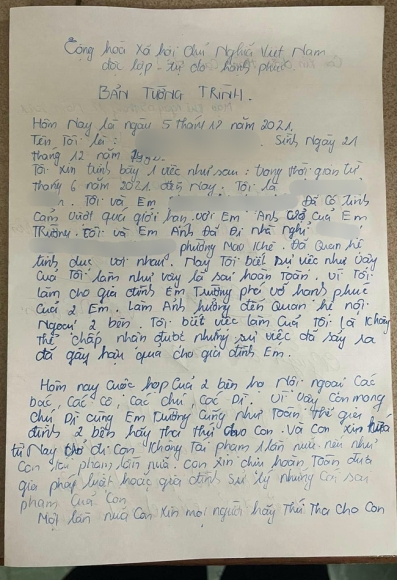 Cộng hoà Xã hội Chủ Nghĩa Việt Nam
độc lập - tự do hành phúc
BẢN TƯỜNG TRÌNH.
Hôm Nay là ngày 5 tháng 12 năm 2021.
Tên Tôi là : Sinh Ngày 21
tháng 12 năm
Tôi xin trình bày 1 việc như sau : trong thời gian từ
tháng 6 năm 2021 đến Nay. Tôi là
Tôi Và Em Đã Có tình
Cảm vượt quá giới hạn với Em Anh Của Em
Trường. Tôi và Em Anh Đã Đi Nhà Nghỉ
phường Mạo Khê. Đã Quan hệ
tình dục với nhau. Nay Tôi biết sự việc như vậy
Của Tôi làm như vậy là sai hoàn Toàn. Vì Tôi
làm cho gia đình Em Trường phá vỡ hạnh phúc
Của 2 Em. Làm Ảnh hưởng đến Quan hệ nội
Ngoại 2 bên. Tôi biết việc làm Của Tôi là Không
Thể chấp nhận được nhưng sự việc đã sảy ra
đã gây hậu quả cho gia đình Em.
Hôm nay Cuộc họp Của 2 bên họ Nội ngoại Các
bác, Các Cô, Các chú, Các Dì. Vì Vậy Con mong
chú Dì Cùng Em Trường Cũng như Toàn Thể gia
đình 2 bên hãy Tha Thứ cho Con. Và Con xin hứa
từ Nay Trở đi Con Không Tái phạm 1 lần nữa nếu như
Con tái phạm lần nữa. Con xin chịu hoàn Toàn dưới
gia pháp luật hoặc gia đình sử lý những Con sai
phạm Của Con
Một lần nữa Con xin mọi người hãy Thứ Tha cho Con